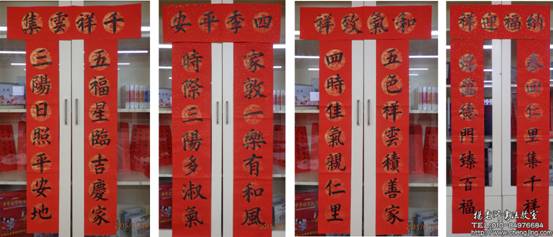 千祥雲集
五福星臨吉慶家
三陽日照平安地
四季平安
家敦一樂有和風
時際三陽多淑氣
和氣致祥
五色祥雲積善家
四時佳氣親仁里
納福迎祥
春回仁里集千祥
德門臻百福